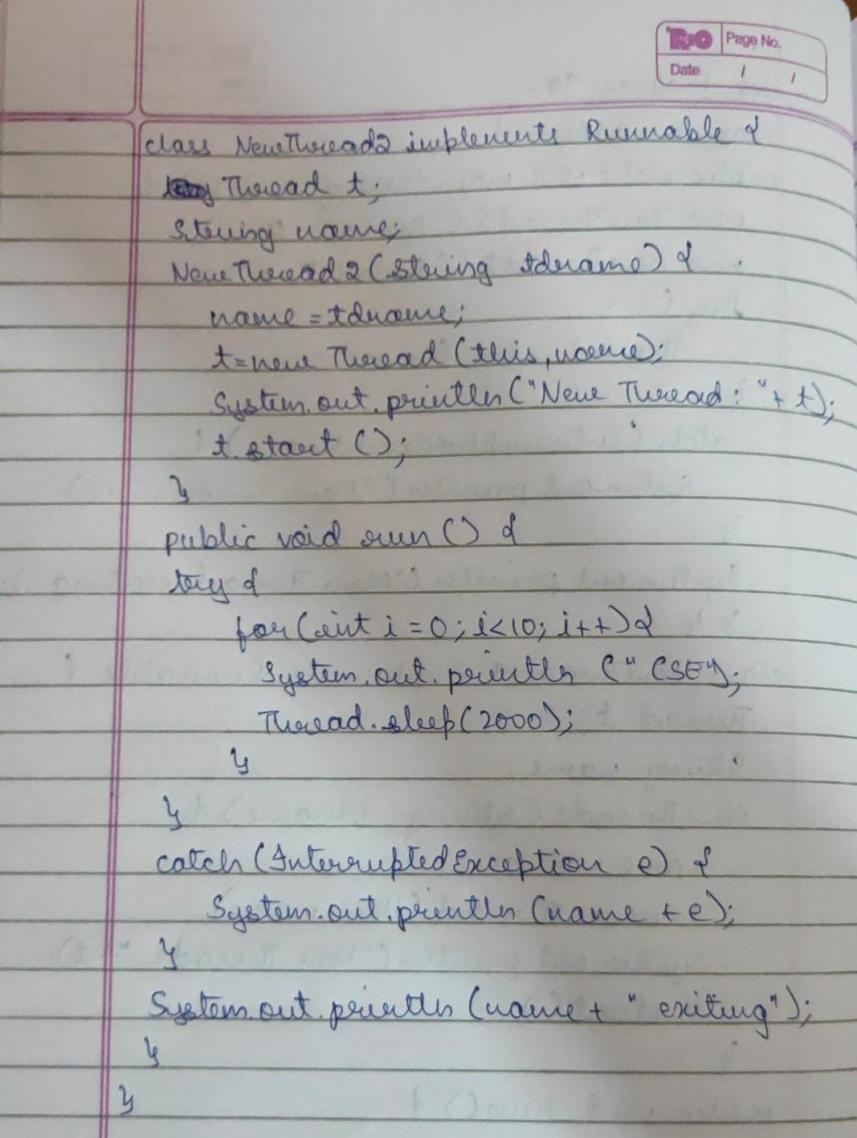 TRUO Page No.
Date / /
class NewThread2 implements Runnable {
Thread t;
String name;
NewThread2 (String tdname) {
name = tdname;
t = new Thread (this, name);
System.out.println ("New Thread : " + t);
t.start ();
}
public void run () {
try {
for (int i = 0 ; i<10; i++) {
System.out.println (" CSE");
Thread.sleep(2000);
}
}
catch (InterruptedException e) {
System.out.println (name + e);
}
System.out.println (name + " exiting");
}
}